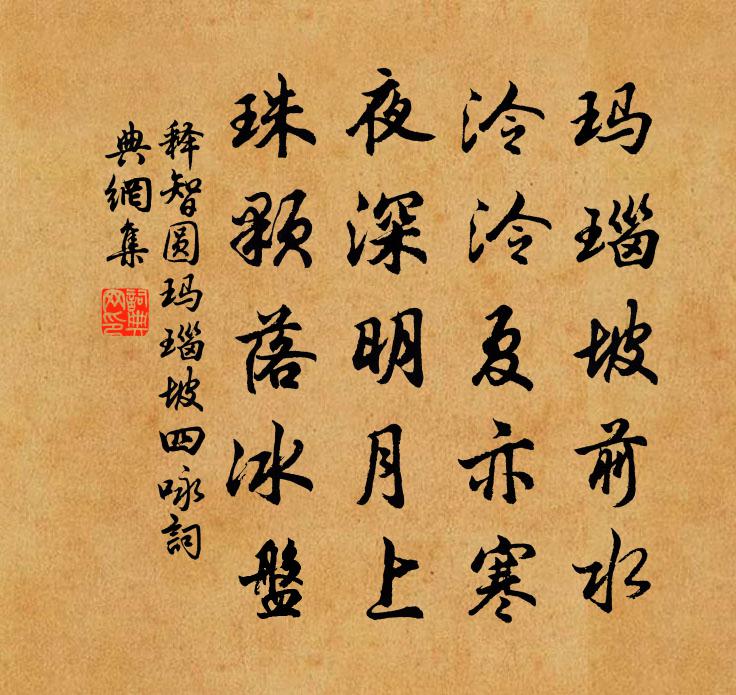 玛瑙坡前水
泠泠夏亦寒
夜深明月上
珠颗落冰盤
释智圆玛瑙坡四咏詞
典網集
詞典
网印